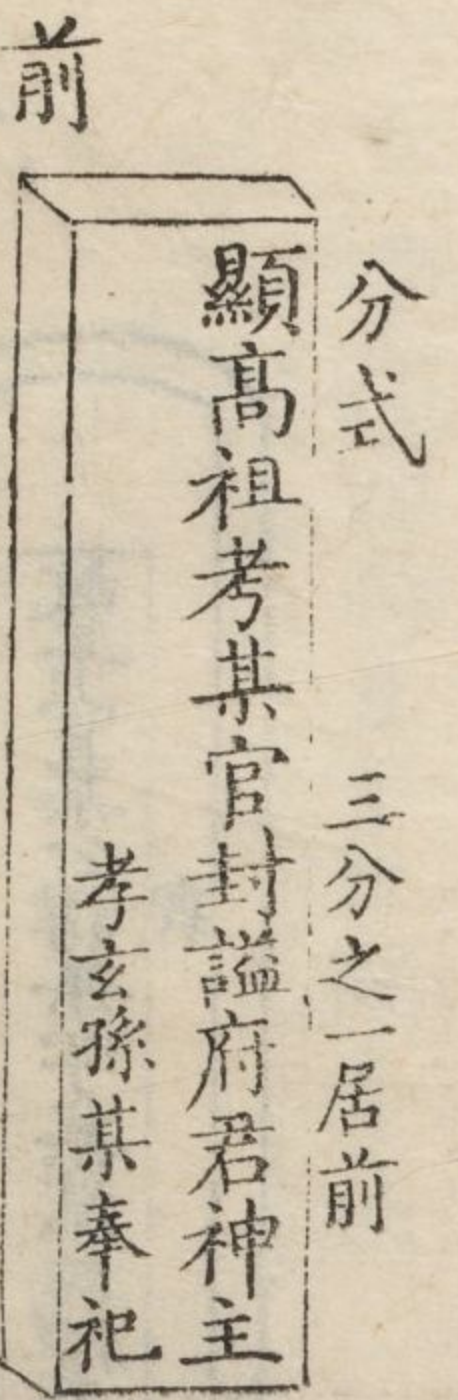 分式
三分之一居前
顯高祖考某官封謚府君神主
孝玄孫某奉祀
前